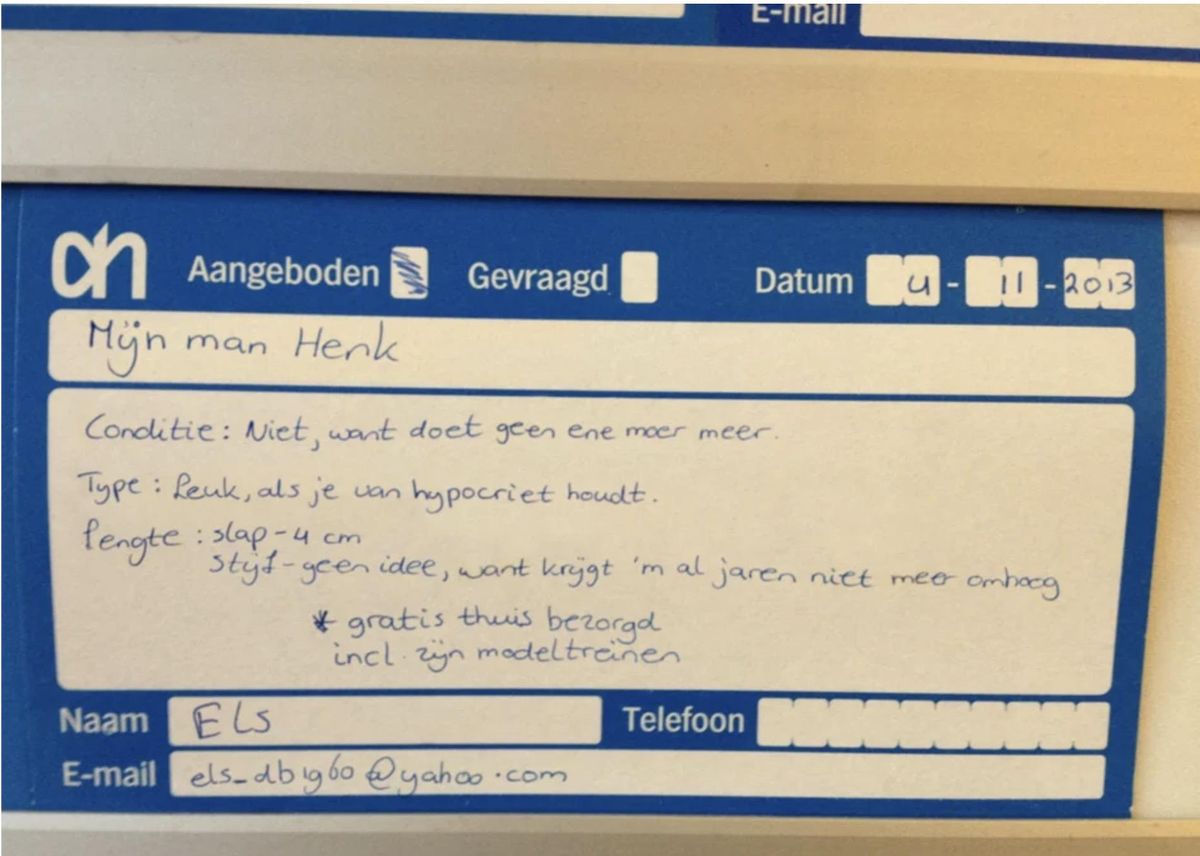 E-mail
ah Aangeboden Gevraagd Datum 4-11-2013
Mijn man Henk
Conditie: Niet, want doet geen ene moer meer.
Type: Leuk, als je van hypocriet houdt.
Lengte: slap-4 cm
stijf-geen idee, want krijgt 'm al jaren niet meer omhoog
* gratis thuis bezorgd
incl. zijn modeltreinen
Naam Els Telefoon
E-mail els_db1960@yahoo.com